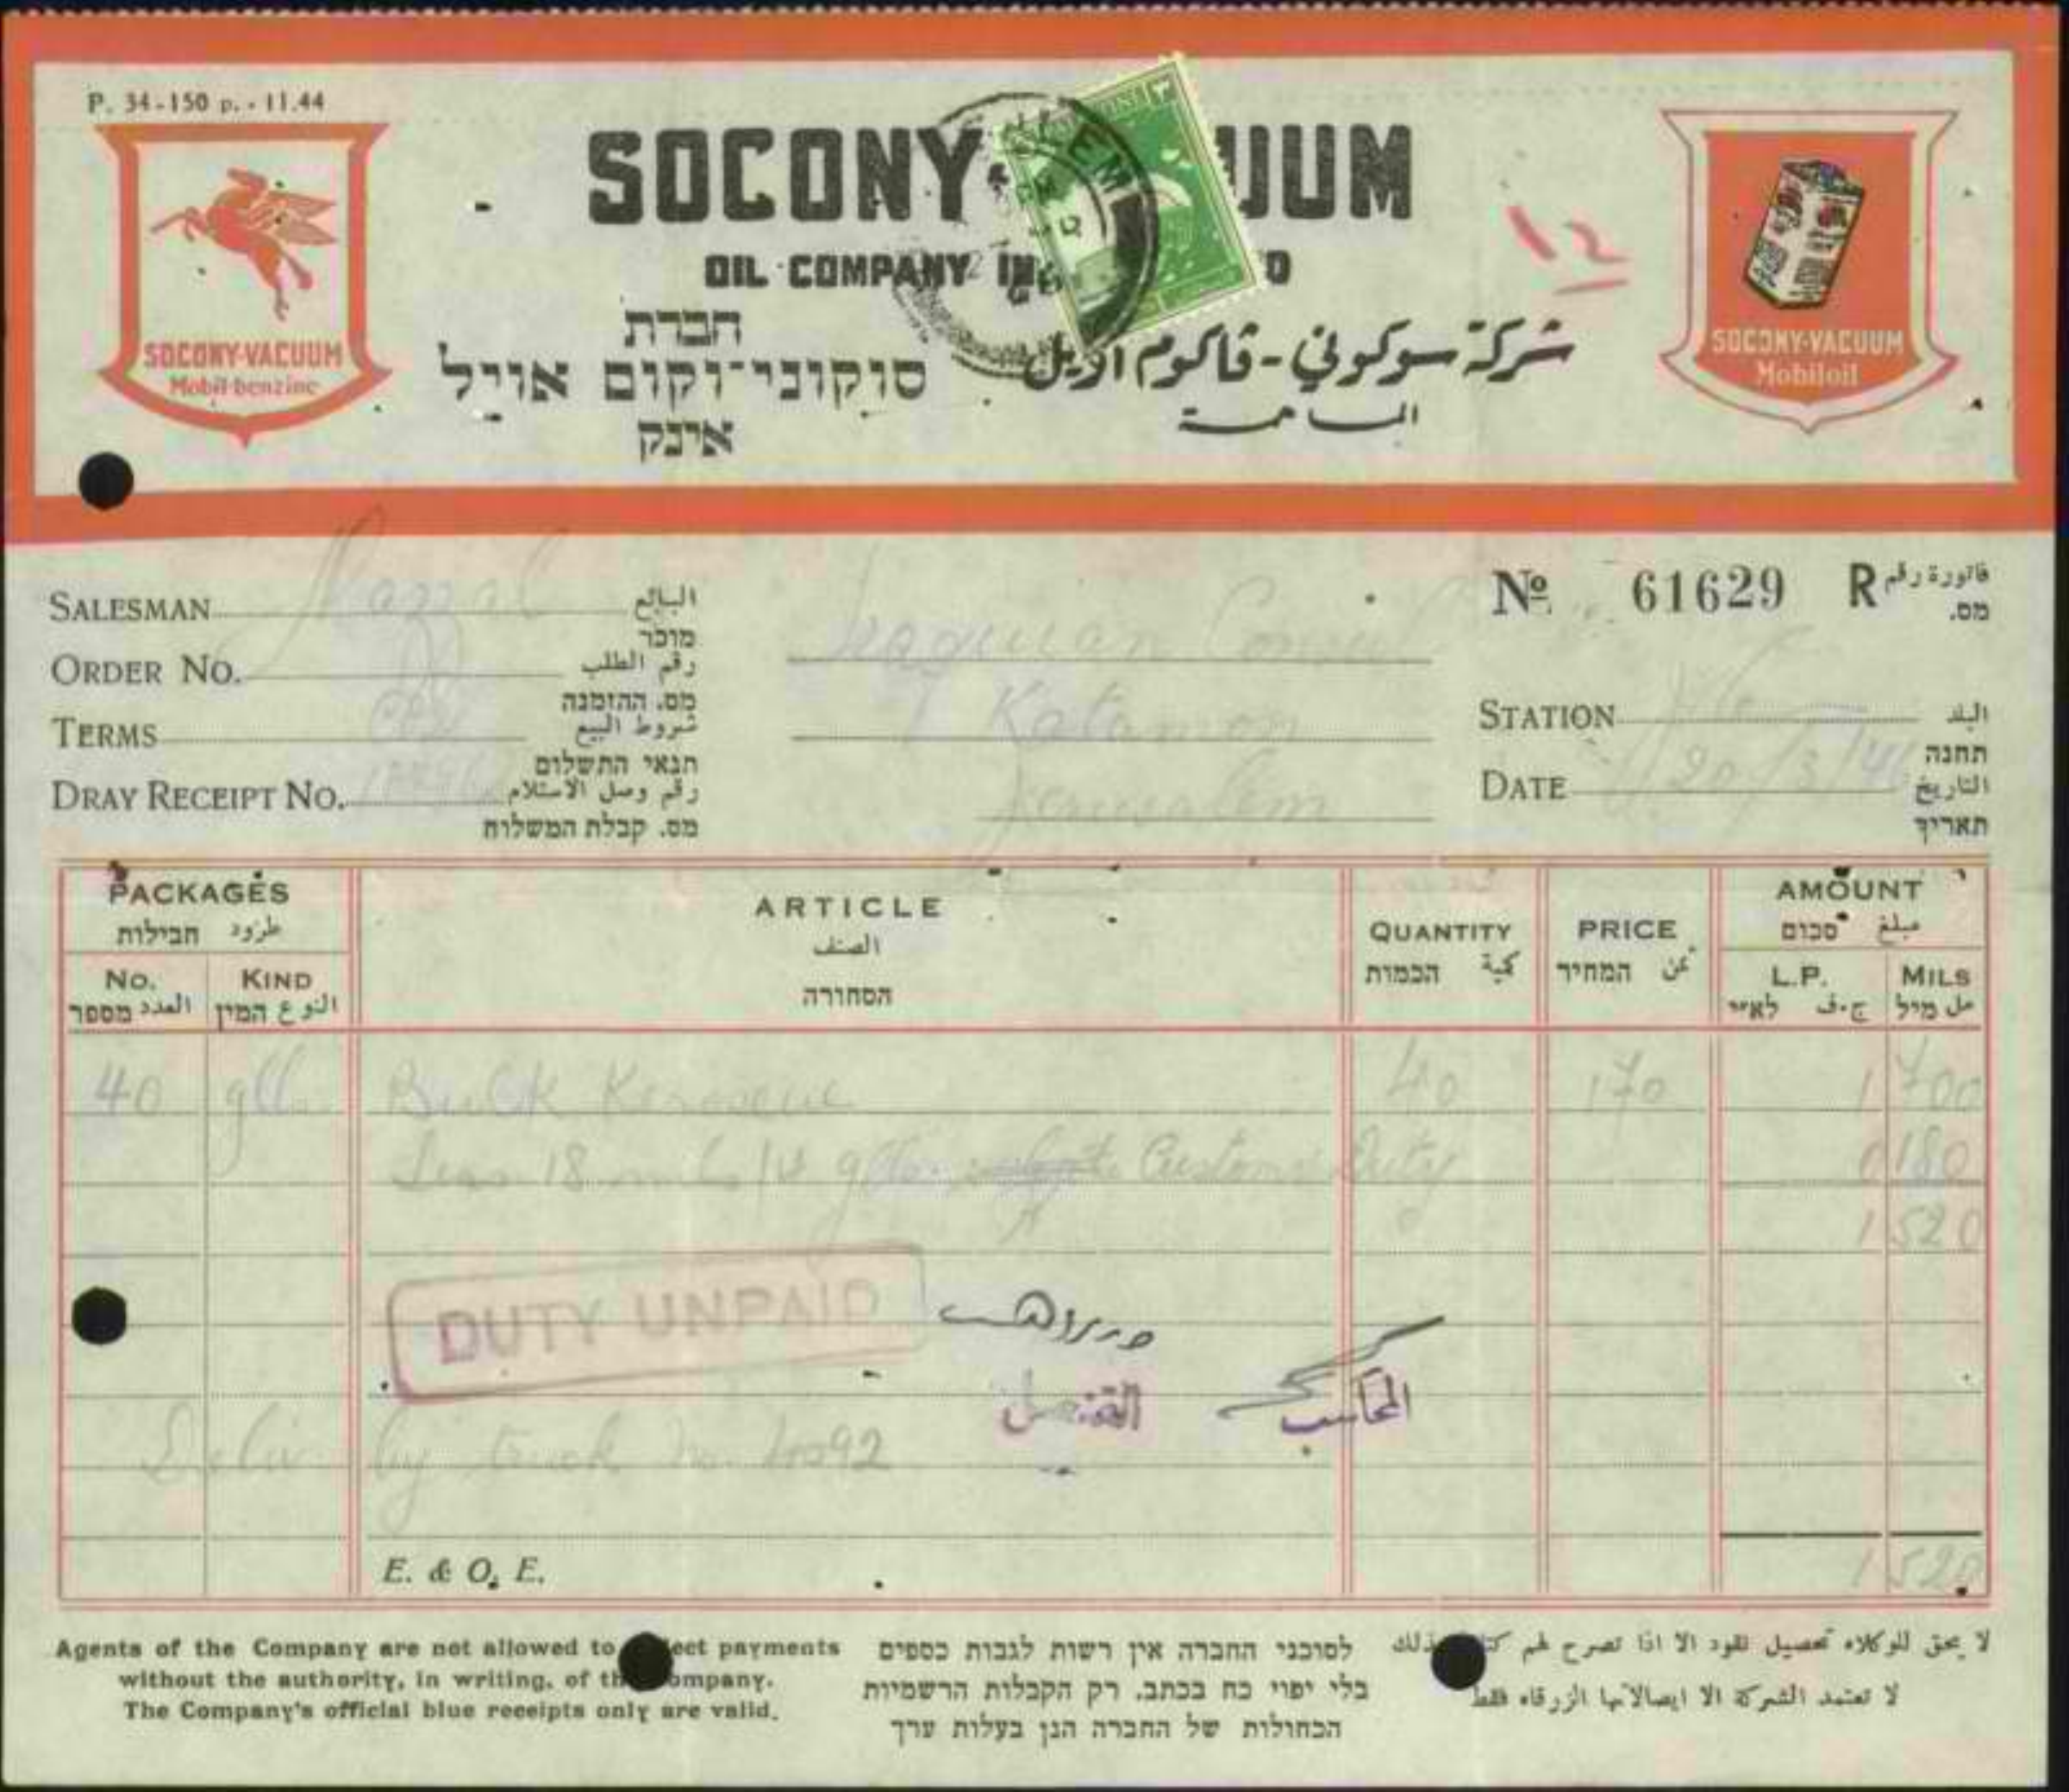 P. 34-150 p. - 11.44
SOCONY- UUM
OIL COMPANY IN
חברת
סוקוני־וקום אויל
אינק
شركة سوكوني - ڤاكوم اويل
المساهمة
SOCONY-VACUUM
Mobil-benzine
SOCONY-VACUUM
Mobiloil
١٢
SALESMAN البائع
מוכר
ORDER No. رقم الطلب
מס. ההזמנה
TERMS شروط البيع
תנאי התשלום
DRAY RECEIPT No. رقم وصل الاستلام
מס. קבלת המשלוח
Iraquian
Katamon
Jerusalem
No 61629 R فاتورة رقم
מס.
STATION البلد
תחנה
DATE 20/3/46 التاريخ
תאריך
PACKAGES
طرود חבילות
No. KIND
العدد מספר النوع המין
ARTICLE
الصنف
הסחורה
QUANTITY
كمية הכמות
PRICE
ثمن המחיר
AMOUNT
مبلغ סכום
L.P. MILS
ج.ف לא״י مل מיל
40 gll. Bulk Kerosene 40 170 1 700
Less 18 mils/4 glls. Customs Duty 0 180
1 520
DUTY UNPAID
القنصل
المحاسب
Deliv by truck No.
E. & O. E.
1 520
Agents of the Company are not allowed to ect payments
without the authority, in writing, of th ompany.
The Company's official blue receipts only are valid.
לסוכני החברה אין רשות לגבות כספים
בלי יפוי כח בכתב. רק הקבלות הרשמיות
הכחולות של החברה הנן בעלות ערך
لا يحق للوكلاء تحصيل نقود الا اذا تصرح لهم كتا بذلك
لا تعتمد الشركة الا ايصالاتها الزرقاء فقط